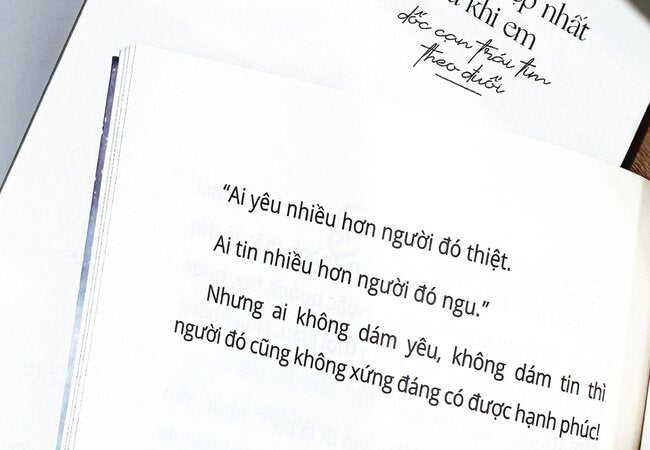 ẹp nhất
khi em
dốc cạn trái tim
theo đuổi
“Ai yêu nhiều hơn người đó thiệt.
Ai tin nhiều hơn người đó ngu.”
Nhưng ai không dám yêu, không dám tin thì
người đó cũng không xứng đáng có được hạnh phúc!